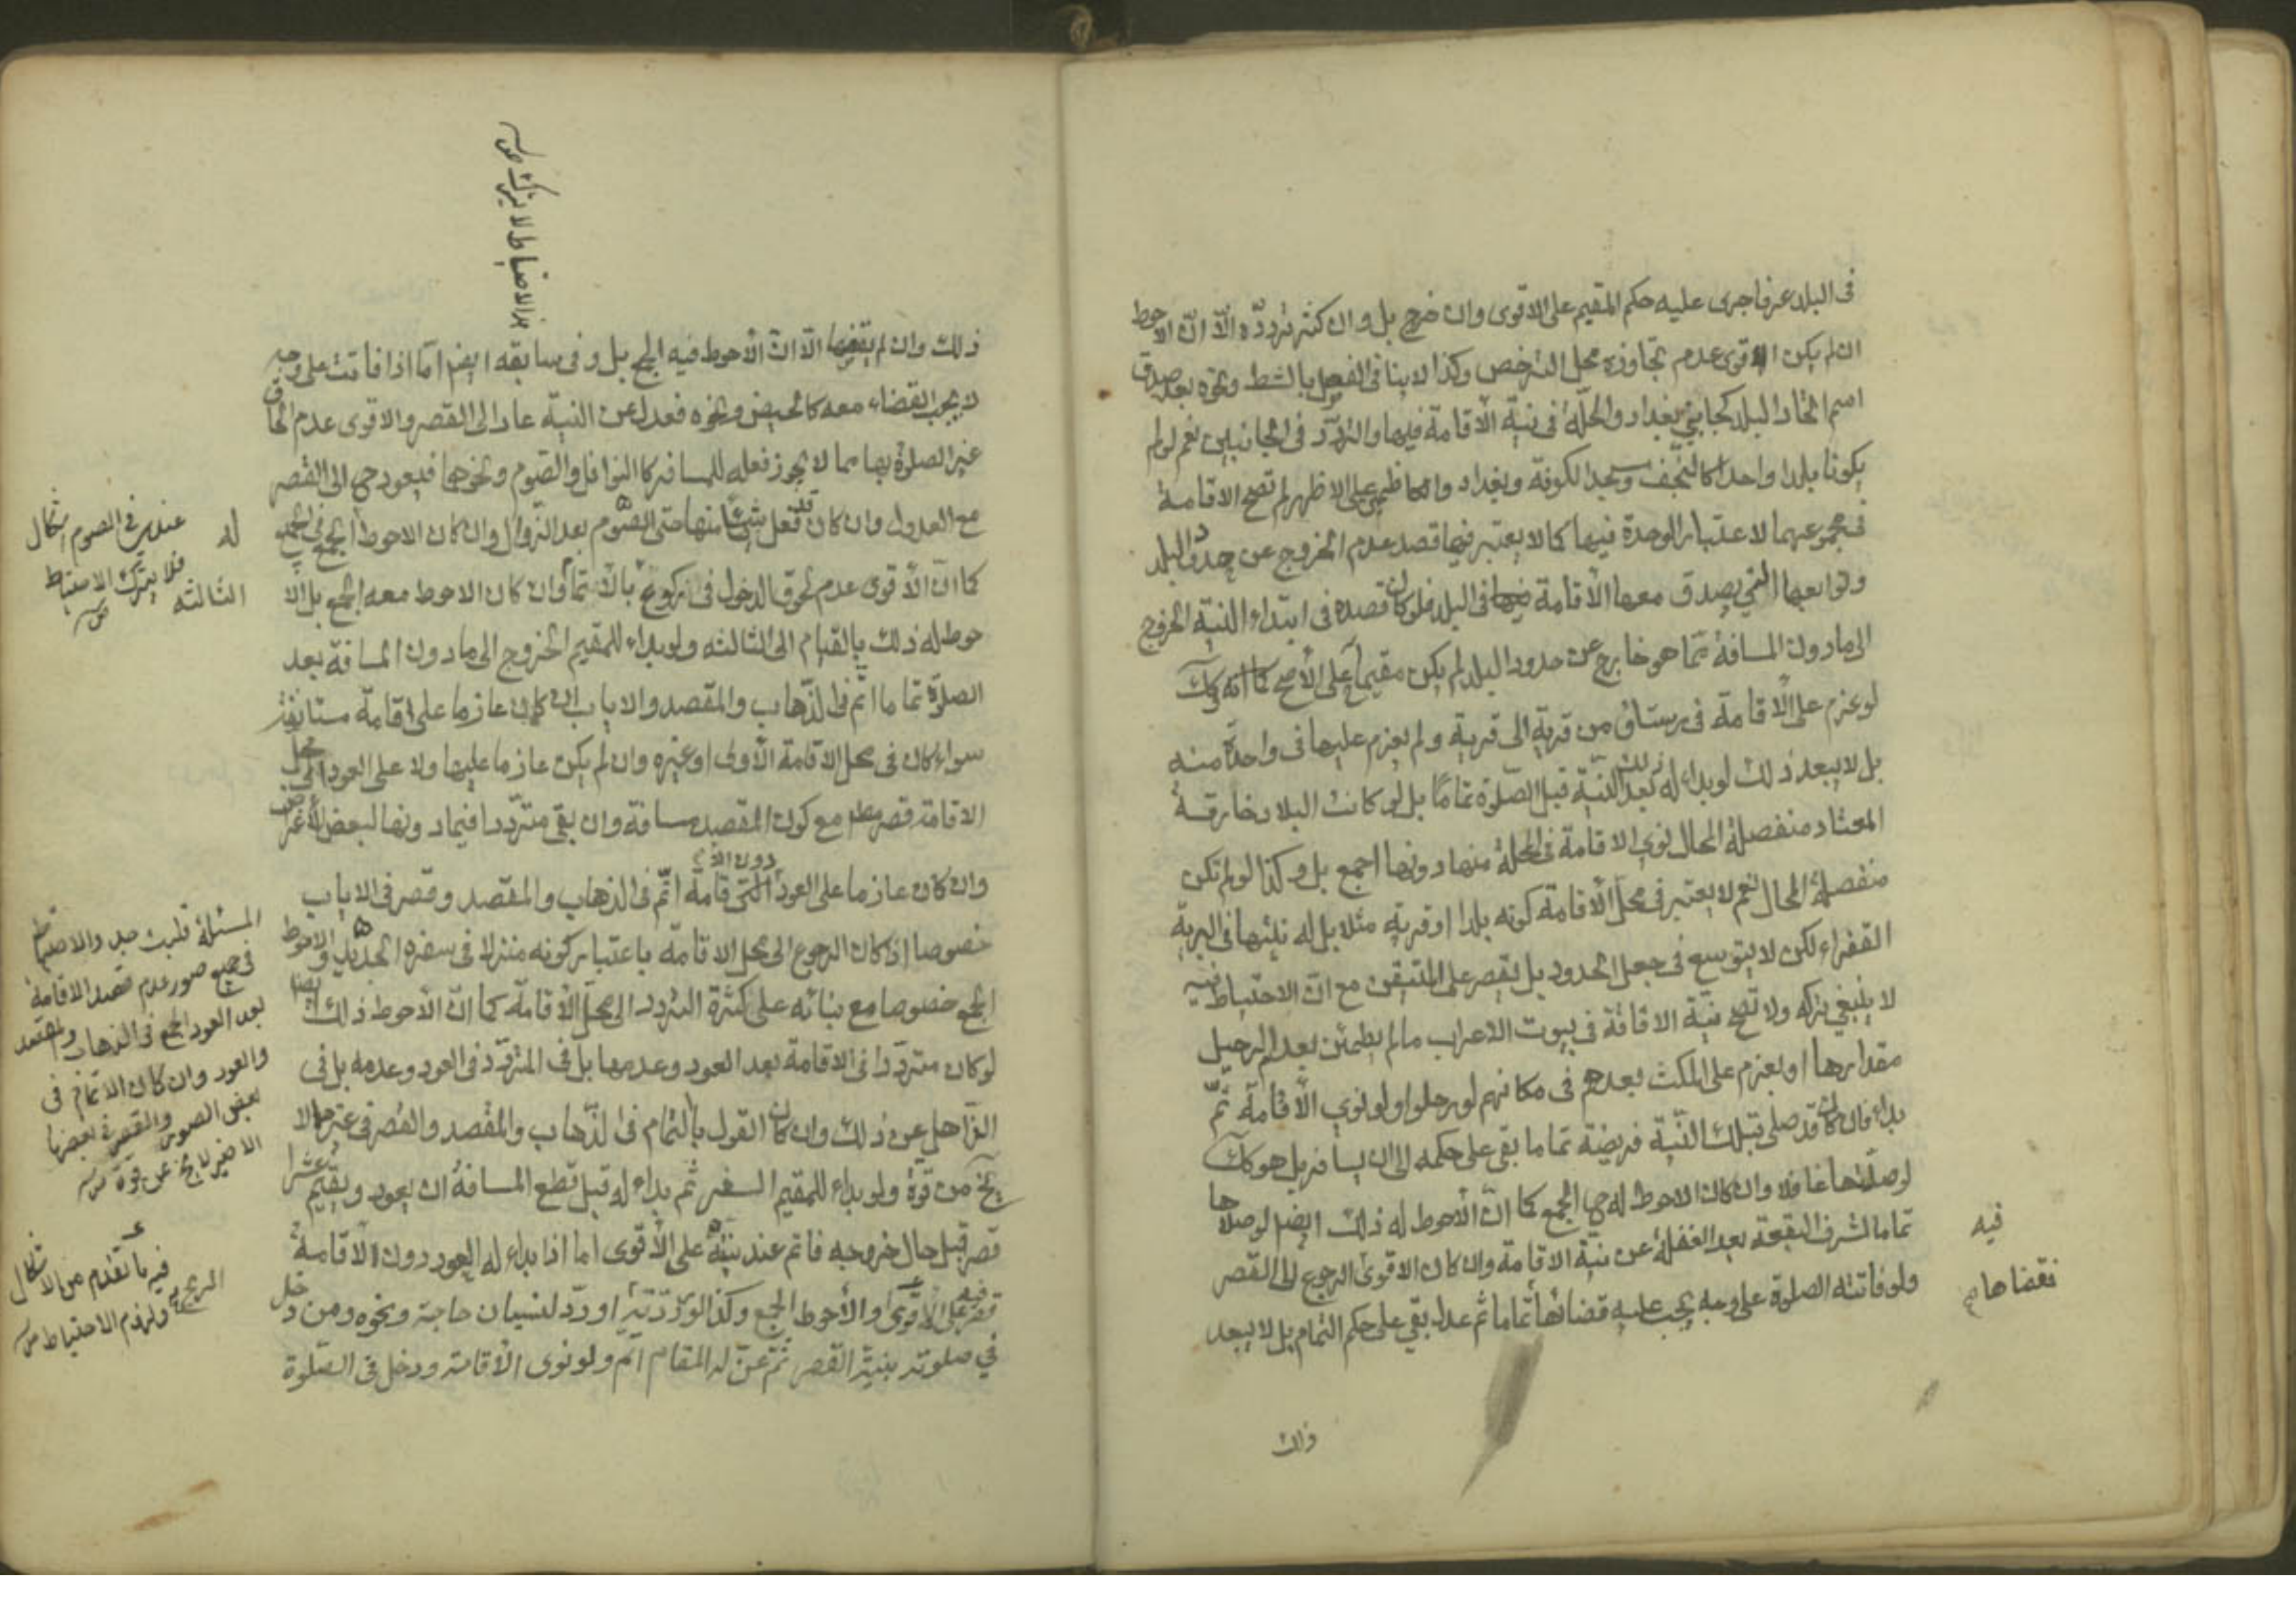 فى البلد عرفا جرى عليه حكم المقيم على الاقوى وان خرج بل وان كثر تردّده الّا انّ الاحوط
ان لم يكن الاقوى عدم تجاوزه محل الترخص وكذا لا ينافى الفصل بالشط ونحوه بعد صدق
اسم اتحاد البلد كجانبى بغداد والحلّة فى نيّة الاقامة فيها والتردّد فى الجانبين نعم لو لم
يكونا بلدا واحدا كالنجف ومسجد الكوفة وبغداد والكاظمين على الاظهر لم تصح الاقامة
فى مجموعهما لاعتبار الوحدة فيها كما لا يعتبر فيها قصد عدم الخروج عن حدود البلد
وتوابعها التى يصدق معها الاقامة فى البلد فلو كان قصده فى ابتداء النيّة الخروج
الى ما دون المسافة ممّا هو خارج عن حدود البلد لم يكن مقيما على الاصح وكك
لو عزم على الاقامة فى رستاق من قرية الى قرية ولم يعزم عليها فى واحدة منه
بل لا يبعد ذلك لو بداء له ذلك بعد النيّة قبل الصّلوة تماما بل لو كانت البلد خارقة
المعتاد منفصلة المحال نوى الاقامة فى المحلة منها دونها اجمع بل وكذا لو لم تكن
منفصلة المحال نعم لا يعتبر فى محل الاقامة كونه بلدا او قرية مثلا بل له نيتها فى البرية
القفراء لكن لا يتوسع فى جعل الحدود بل يقصر على المتيقن مع انّ الاحتياط فيه
لا ينبغى تركه ولا تصح نيّة الاقامة فى بيوت الاعراب ما لم يطمئن بعدم الرحيل
مقدارها او يعزم على المكث بعدهم فى مكانهم لو رحلوا ولو نوى الاقامة ثمّ
بداء فان كان قد صلى بتلك النّية فريضة تماما بقى على حكمه الى ان يسافر بل هو كك
لو صلّتها غافلا وان كان الاحوط له ح الجمع كما انّ الاحوط له ذلك ايضا لو صلاها
تماما لشرف البقعة بعد الغفلة عن نيّة الاقامة وان كان الاقوى الرجوع الى القصر
فيه
ولو فاتته الصلوة على وجه يجب عليه قضائها تماما ثم عدل بقى على حكم التمام بل لا يبعد
نقضاها
ذلك
والاحتياط لا يترك
ذلك وان لم يقضها الّا انّ الاحوط فيه الجمع بل وفى سابقه ايضا امّا اذا فاتت على وجه
لا يجب القضاء معه كالحيض ونحوه فعدل عن النيّة عاد الى القصر والاقوى عدم الحاق
غير الصلوة بها مما لا يجوز فعله للمسافر كالنوافل والصّوم ونحوهما فيعود ح الى القصر
مع العدول وان كان قد فعل شيئا منها حتى الصّوم بعد الزّوال وان كان الاحوط الجمع فى الجميع
كما انّ الاقوى عدم لحوق الدخول فى ركوع بالاتمام وان كان الاحوط معه الجمع بل الا
حوط له ذلك بالقيام الى الثالثه ولو بداء للمقيم الخروج الى ما دون المسافة بعد
الصلوة تماما اتم فى الذّهاب والمقصد والاياب ان كان عازما على اقامة مستانفة
سواء كان فى محل الاقامة الاولى او غيره وان لم يكن عازما عليها ولا على العود الى محل
الاقامة قصر مع كون المقصد مسافة وان بقى متردّدا فيما دونها لبعض الاغراض
وان كان عازما على العود دون الاقامة اتمّ فى الذهاب والمقصد وقصر فى الاياب
خصوصا اذا كان الرجوع الى محل الاقامة باعتبار كونه منزلا فى سفره الجديد والاحوط
الجمع خصوصا مع بنائه على كثرة التردد الى محل الاقامة كما انّ الاحوط ذلك ايضا
لو كان متردّدا فى الاقامة بعد العود وعدمها بل فى المتردّد فى العود وعدمه بل فى
الذّاهل عن ذلك وان كان القول بالتمام فى الذّهاب والمقصد والقصر فى غيرهما لا
يخ من قوّة ولو بداء للمقيم السفر ثم بداء له قبل قطع المسافة ان يعود ويقيم عشرا
قصر قبل حال خروجه فاتم عند نيته على الاقوى اما اذا بداء له العود دون الاقامة
قصر على الاقوى والاحوط الجمع وكذا لو ردّته او ردّ لنسيان حاجة ونحوه ومن دخل
فى صلوته بنيّة القصر ثمّ عنّ له المقام اتم ولو نوى الاقامة ودخل فى الصّلوة
عندى فى الصوم اشكال
فلا يترك الاحتياط
له
الثالثه
المسئلة قلت جدا والاحتياط
فى جميع صور عدم قصد الاقامة
بعد العود الجمع فى الذهاب والمقصد
والعود وان كان الاتمام فى
بعض الصور والقصر فى بعضها
الاخير لا يخ عن قوة
فيه ما تقدم من الاشكال
ولزم الاحتياط
الريح